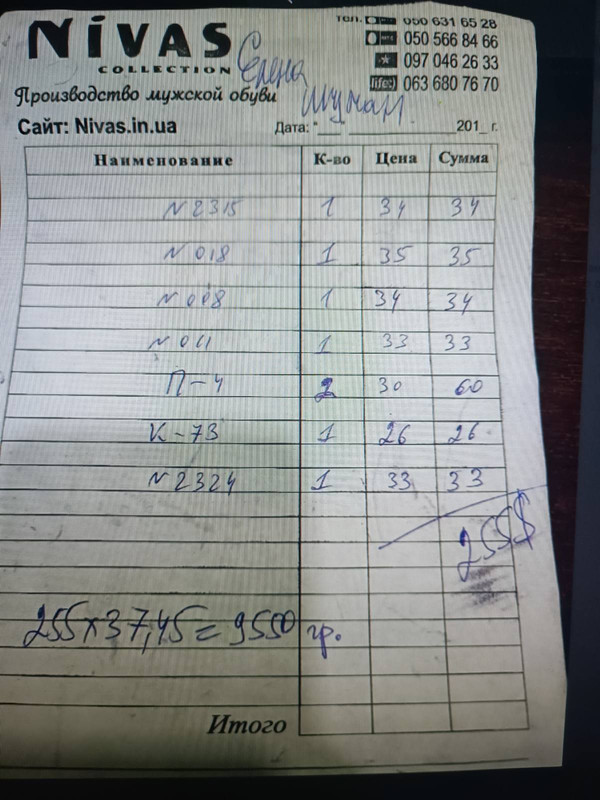 NiVAS
COLLECTION
Производство мужской обуви
Сайт: Nivas.in.ua
тел. 050 631 65 28
050 566 84 66
097 046 26 33
life:) 063 680 76 70
Елена
Шуман
Дата: "___" __________ 201_ г.
Наименование К-во Цена Сумма
N 2315 1 34 34
N 018 1 35 35
N 008 1 34 34
N 011 1 33 33
П-4 2 30 60
К-73 1 26 26
N 2324 1 33 33
255$
255x37,45=9550 гр.
Итого